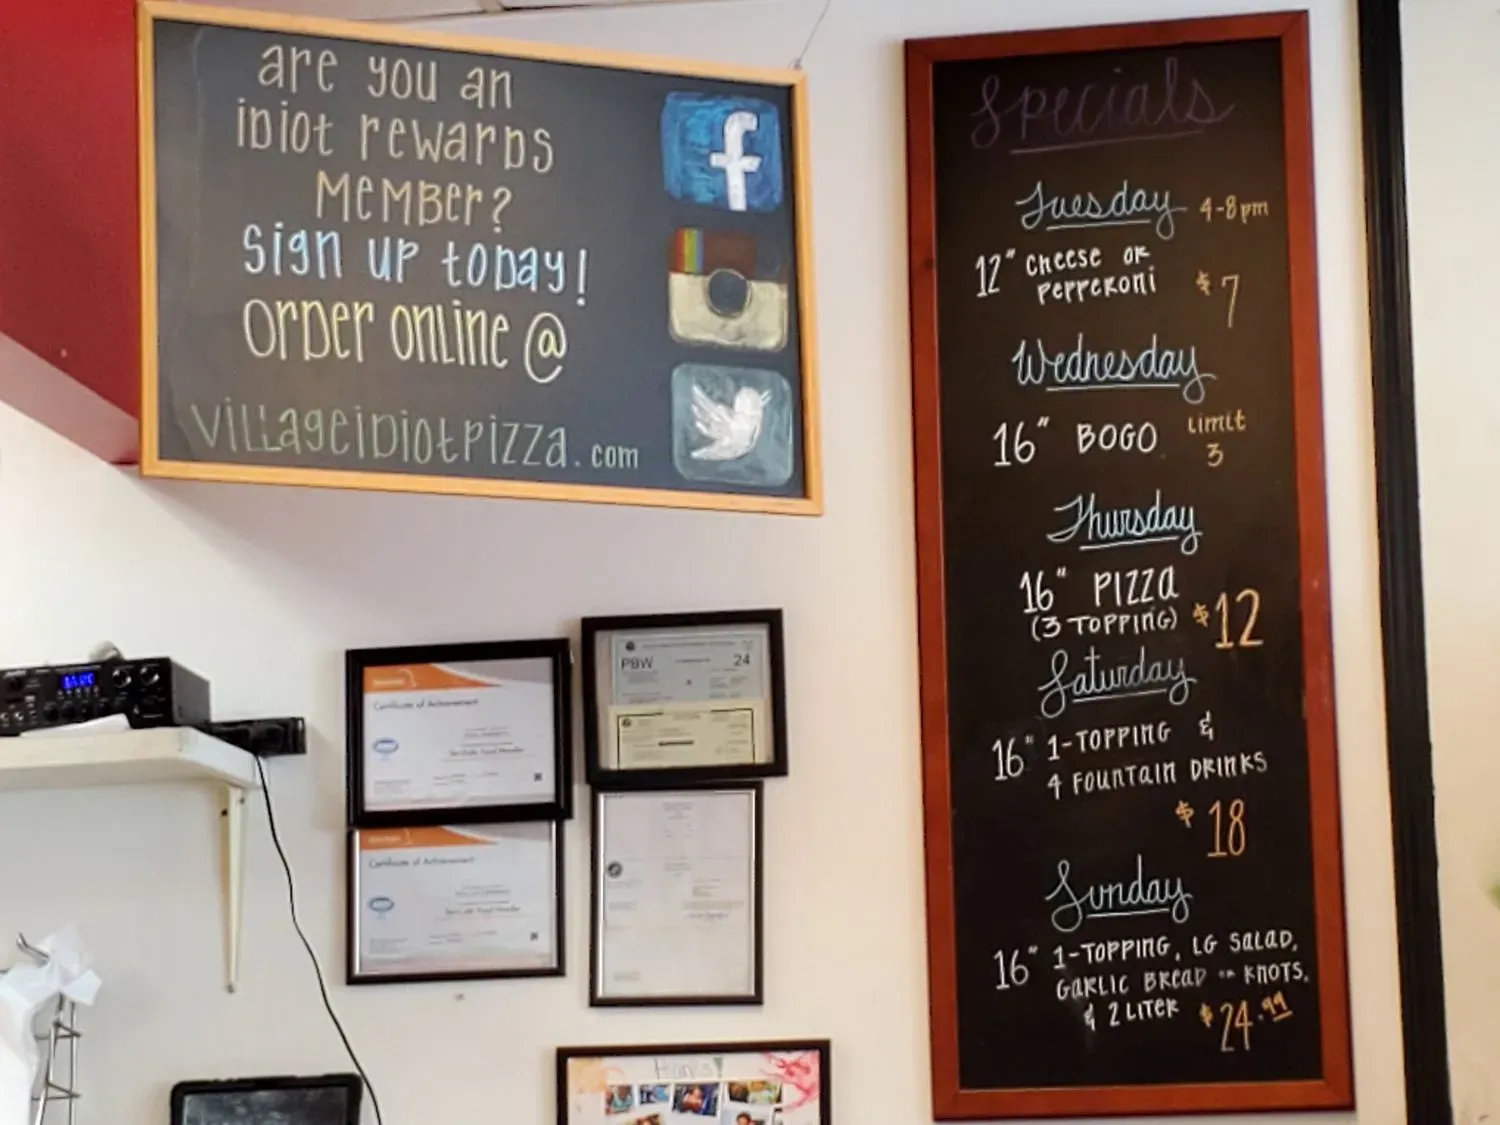 are you an
idiot rewards
member?
sign up today!
order online @
villageidiotpizza.com
Specials
Tuesday 4-8pm
12" cheese or
pepperoni
$7
Wednesday
16" BOGO
Limit
3
Thursday
16" PIZZA
(3 TOPPING)
$12
Saturday
16" 1-TOPPING &
4 FOUNTAIN DRINKS
$18
Sunday
16" 1-TOPPING, LG SALAD,
GARLIC BREAD or KNOTS,
& 2 LITER
$24.99
Certificate of Achievement
Certificate of Achievement
PBW
24